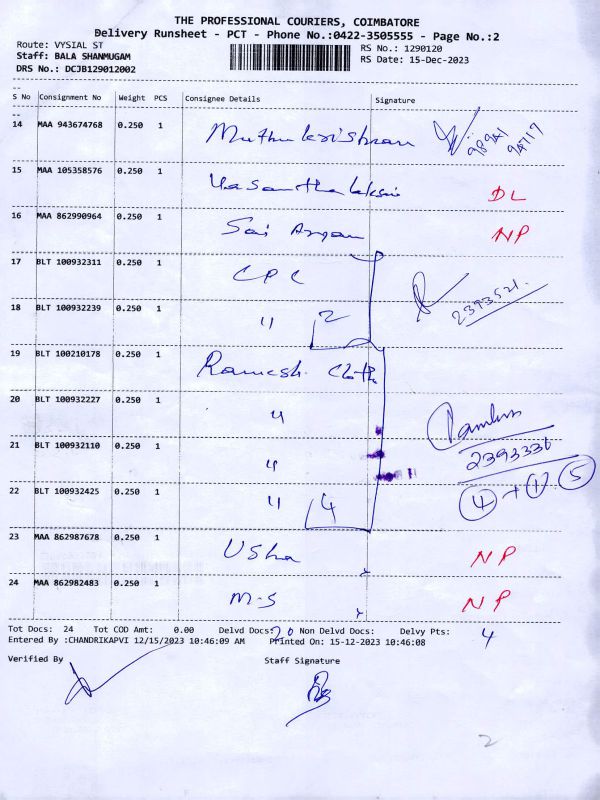 THE PROFESSIONAL COURIERS, COIMBATORE
Delivery Runsheet - PCT - Phone No.:0422-3505555 - Page No.:2
Route: VYSIAL ST
Staff: BALA SHANMUGAM
DRS No.: DCJB129012002
RS No.: 1290120
RS Date: 15-Dec-2023
S No Consignment No Weight PCS Consignee Details Signature
14 MAA 943674768 0.250 1 Muthukrishnan
15 MAA 105358576 0.250 1 DL
16 MAA 862990964 0.250 1 Sai NP
17 BLT 100932311 0.250 1 CPC
18 BLT 100932239 0.250 1 " 2 2393521
19 BLT 100210178 0.250 1 Ramesh Cloth
20 BLT 100932227 0.250 1 "
21 BLT 100932110 0.250 1 " 2393336
22 BLT 100932425 0.250 1 " 4 4 + 1 5
23 MAA 862987678 0.250 1 Usha NP
24 MAA 862982483 0.250 1 M-S NP
Tot Docs: 24 Tot COD Amt: 0.00 Delvd Docs: 20 Non Delvd Docs: Delvy Pts: 4
Entered By :CHANDRIKAPVI 12/15/2023 10:46:09 AM Printed On: 15-12-2023 10:46:08
Verified By Staff Signature
2